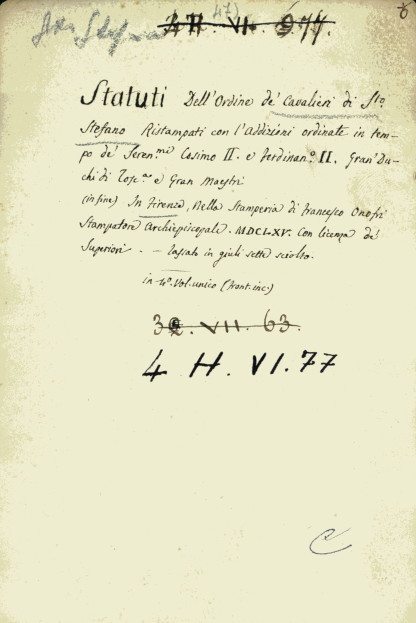 47)
4 H. VI. 977.
Statuti Dell'Ordine de' Cavalieri di Sto.
Stefano Ristampati con l'Addizioni ordinate in tem-
po de' Seren.mi Cosimo II. e Ferdinan.o II. Gran' Du-
chi di Tosc.na e Gran Maestri
(in fine) In Firenze, Nella Stamperia di Francesco Onofri
Stampatore Archiepiscopale. MDCLXV. Con licenza de'
Superiori. — Tassato in giuli sette sciolto.
in 4o. Vol. unico (front. inc.)
32. VII. 63.
4 H. VI. 77